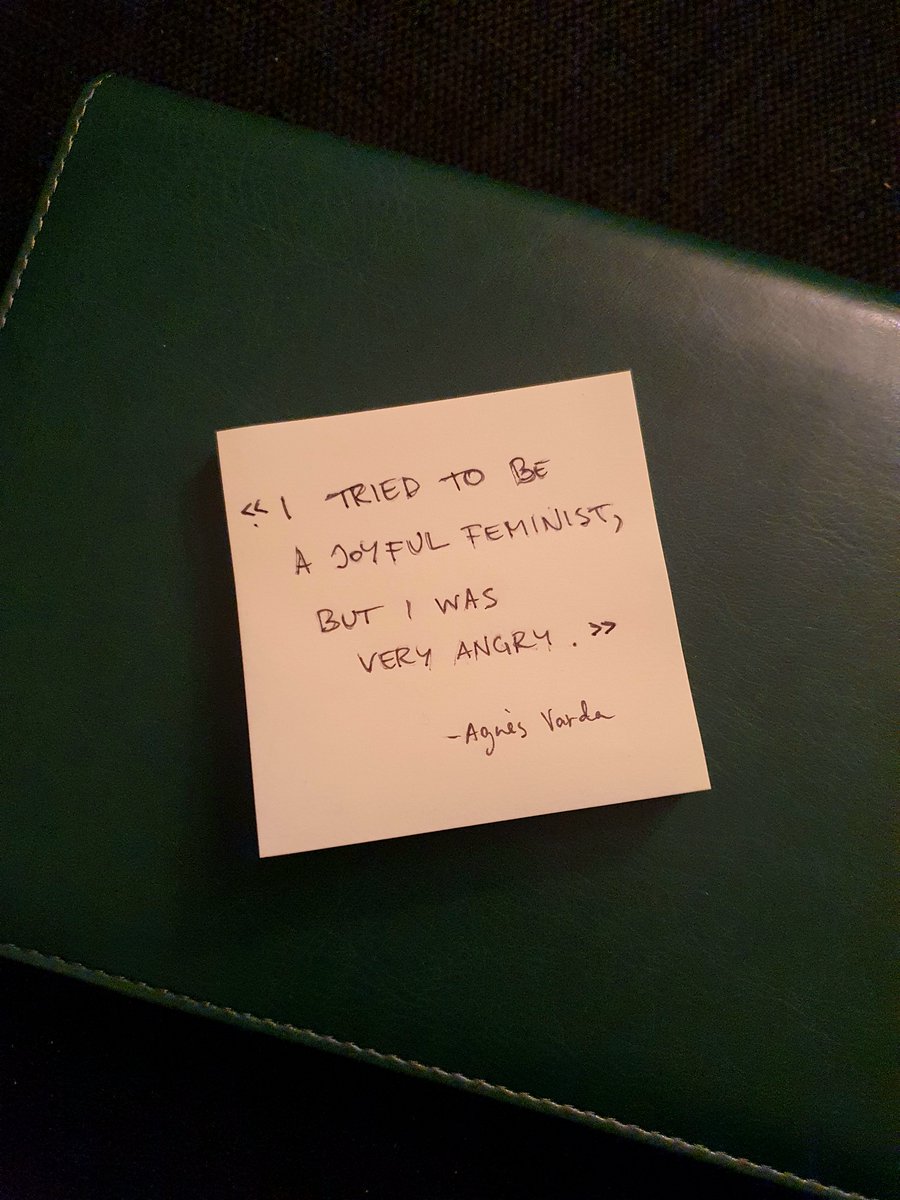 « I TRIED TO BE
A JOYFUL FEMINIST,
BUT I WAS
VERY ANGRY. »
- Agnès Varda